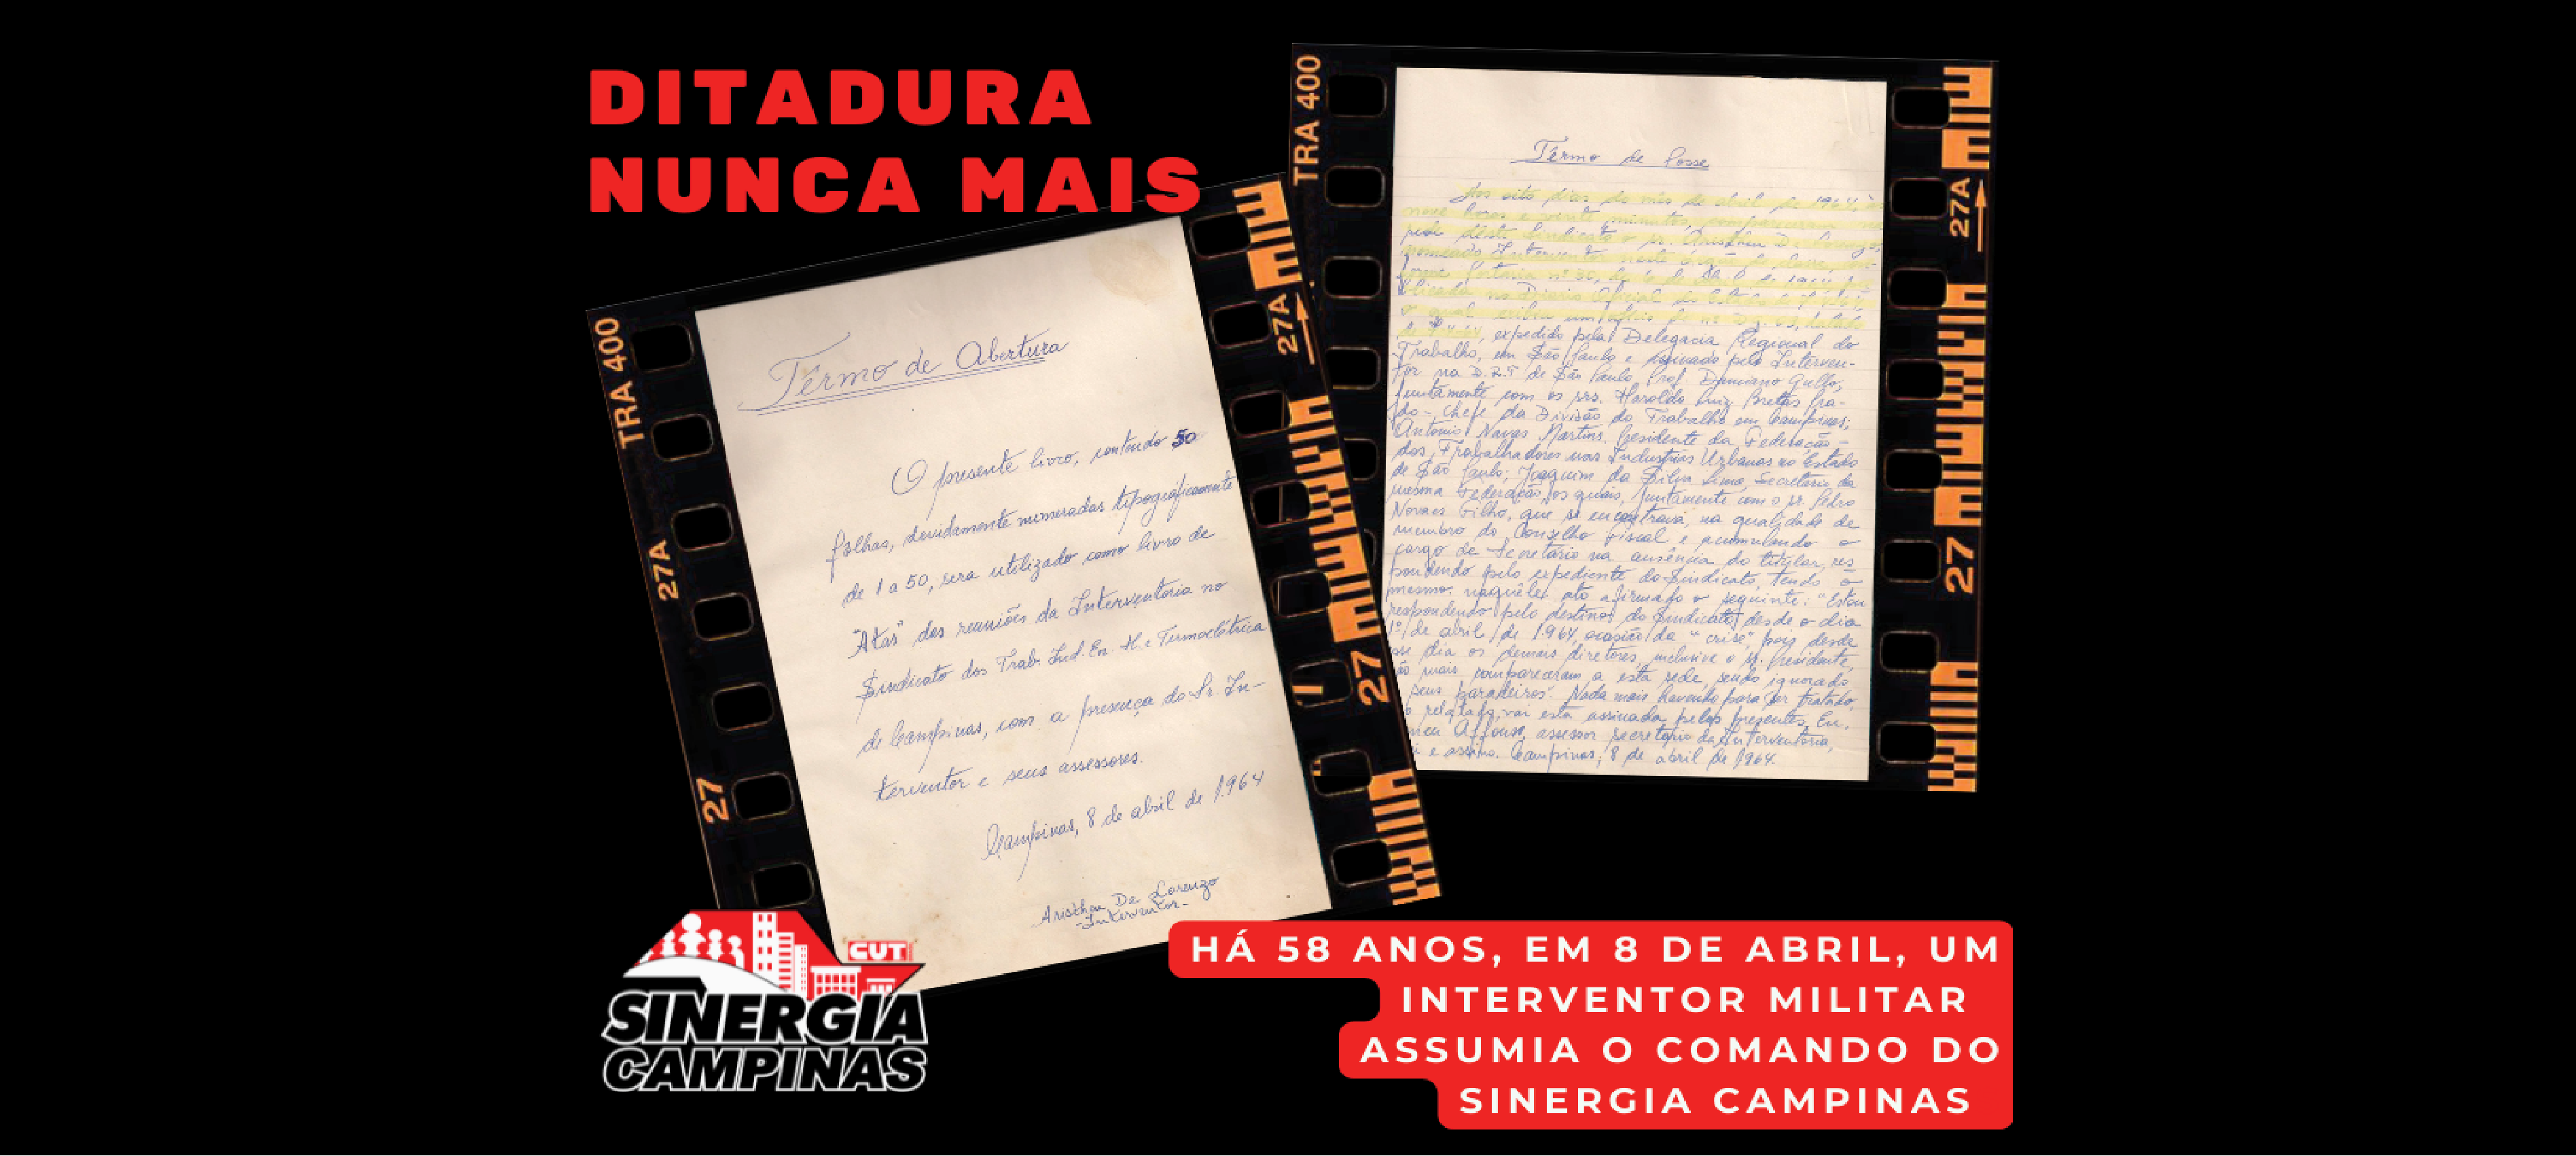 DITADURA
NUNCA MAIS
TRA 400
27A
27
27A
27
Têrmo de Abertura
O presente livro, contendo 50
folhas, devidamente numeradas tipograficamente
de 1 a 50, sera utilizado como livro de
"Atas" das reuniões da Interventoria no
Sindicato dos Trab. Ind. En. H. e Termoelétrica
de Campinas, com a presença do Sr. In-
terventor e seus assessores.
Campinas, 8 de abril de 1964
De Lorenzo
-Interventor-
TRA 400
27A
27
Têrmo de Posse
Aos oito dias do mês de abril de 1964, às
nove horas e vinte minutos, compareceram na
sede dêste Sindicato o sr. De Lorenzo,
nomeado Interventor neste órgão de classe, con-
forme Portaria nº 30, de 6
blicada no Diário Oficial do Estado
o qual exibiu um ofício de nº
expedido pela Delegacia Regional do
Trabalho, em São Paulo e assinado pelo Interven-
tor na D.R.T de São Paulo, Prof. Damiano Gullo,
juntamente com os srs. Haroldo Luiz Bretas Pra-
do - Chefe da Divisão do Trabalho em Campinas;
Antonio Navas Martins, Presidente da Federação
dos Trabalhadores nas Industrias Urbanas no Estado
de São Paulo; Joaquim da Silva Lima, Secretario da
mesma Federação, os quais, juntamente com o sr. Pedro
Novaes Filho, que se encontrava, na qualidade de
membro do Conselho Fiscal e acumulando o
cargo de Secretário na ausência do titular, res
pondendo pelo expediente do Sindicato, tendo o
mesmo naquêle ato afirmado o seguinte: "Estou
respondendo pelo destino do Sindicato desde o dia
1º de abril de 1.964, ocasião da "crise", pois desde
sse dia os demais diretores, inclusive o sr. Presidente,
ão mais compareceram a esta sede sendo ignorado
seus paradeiros". Nada mais havendo para ser tratado,
relatado, vai esta assinada pelos presentes. Eu,
Affonso, assessor secretario da Interventoria,
i e assino. Campinas, 8 de abril de 1964.
CUT
SINERGIA
CAMPINAS
HÁ 58 ANOS, EM 8 DE ABRIL, UM
INTERVENTOR MILITAR
ASSUMIA O COMANDO DO
SINERGIA CAMPINAS